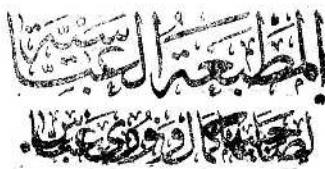 المطبعة العباسية
لصاحبها كمال عباس